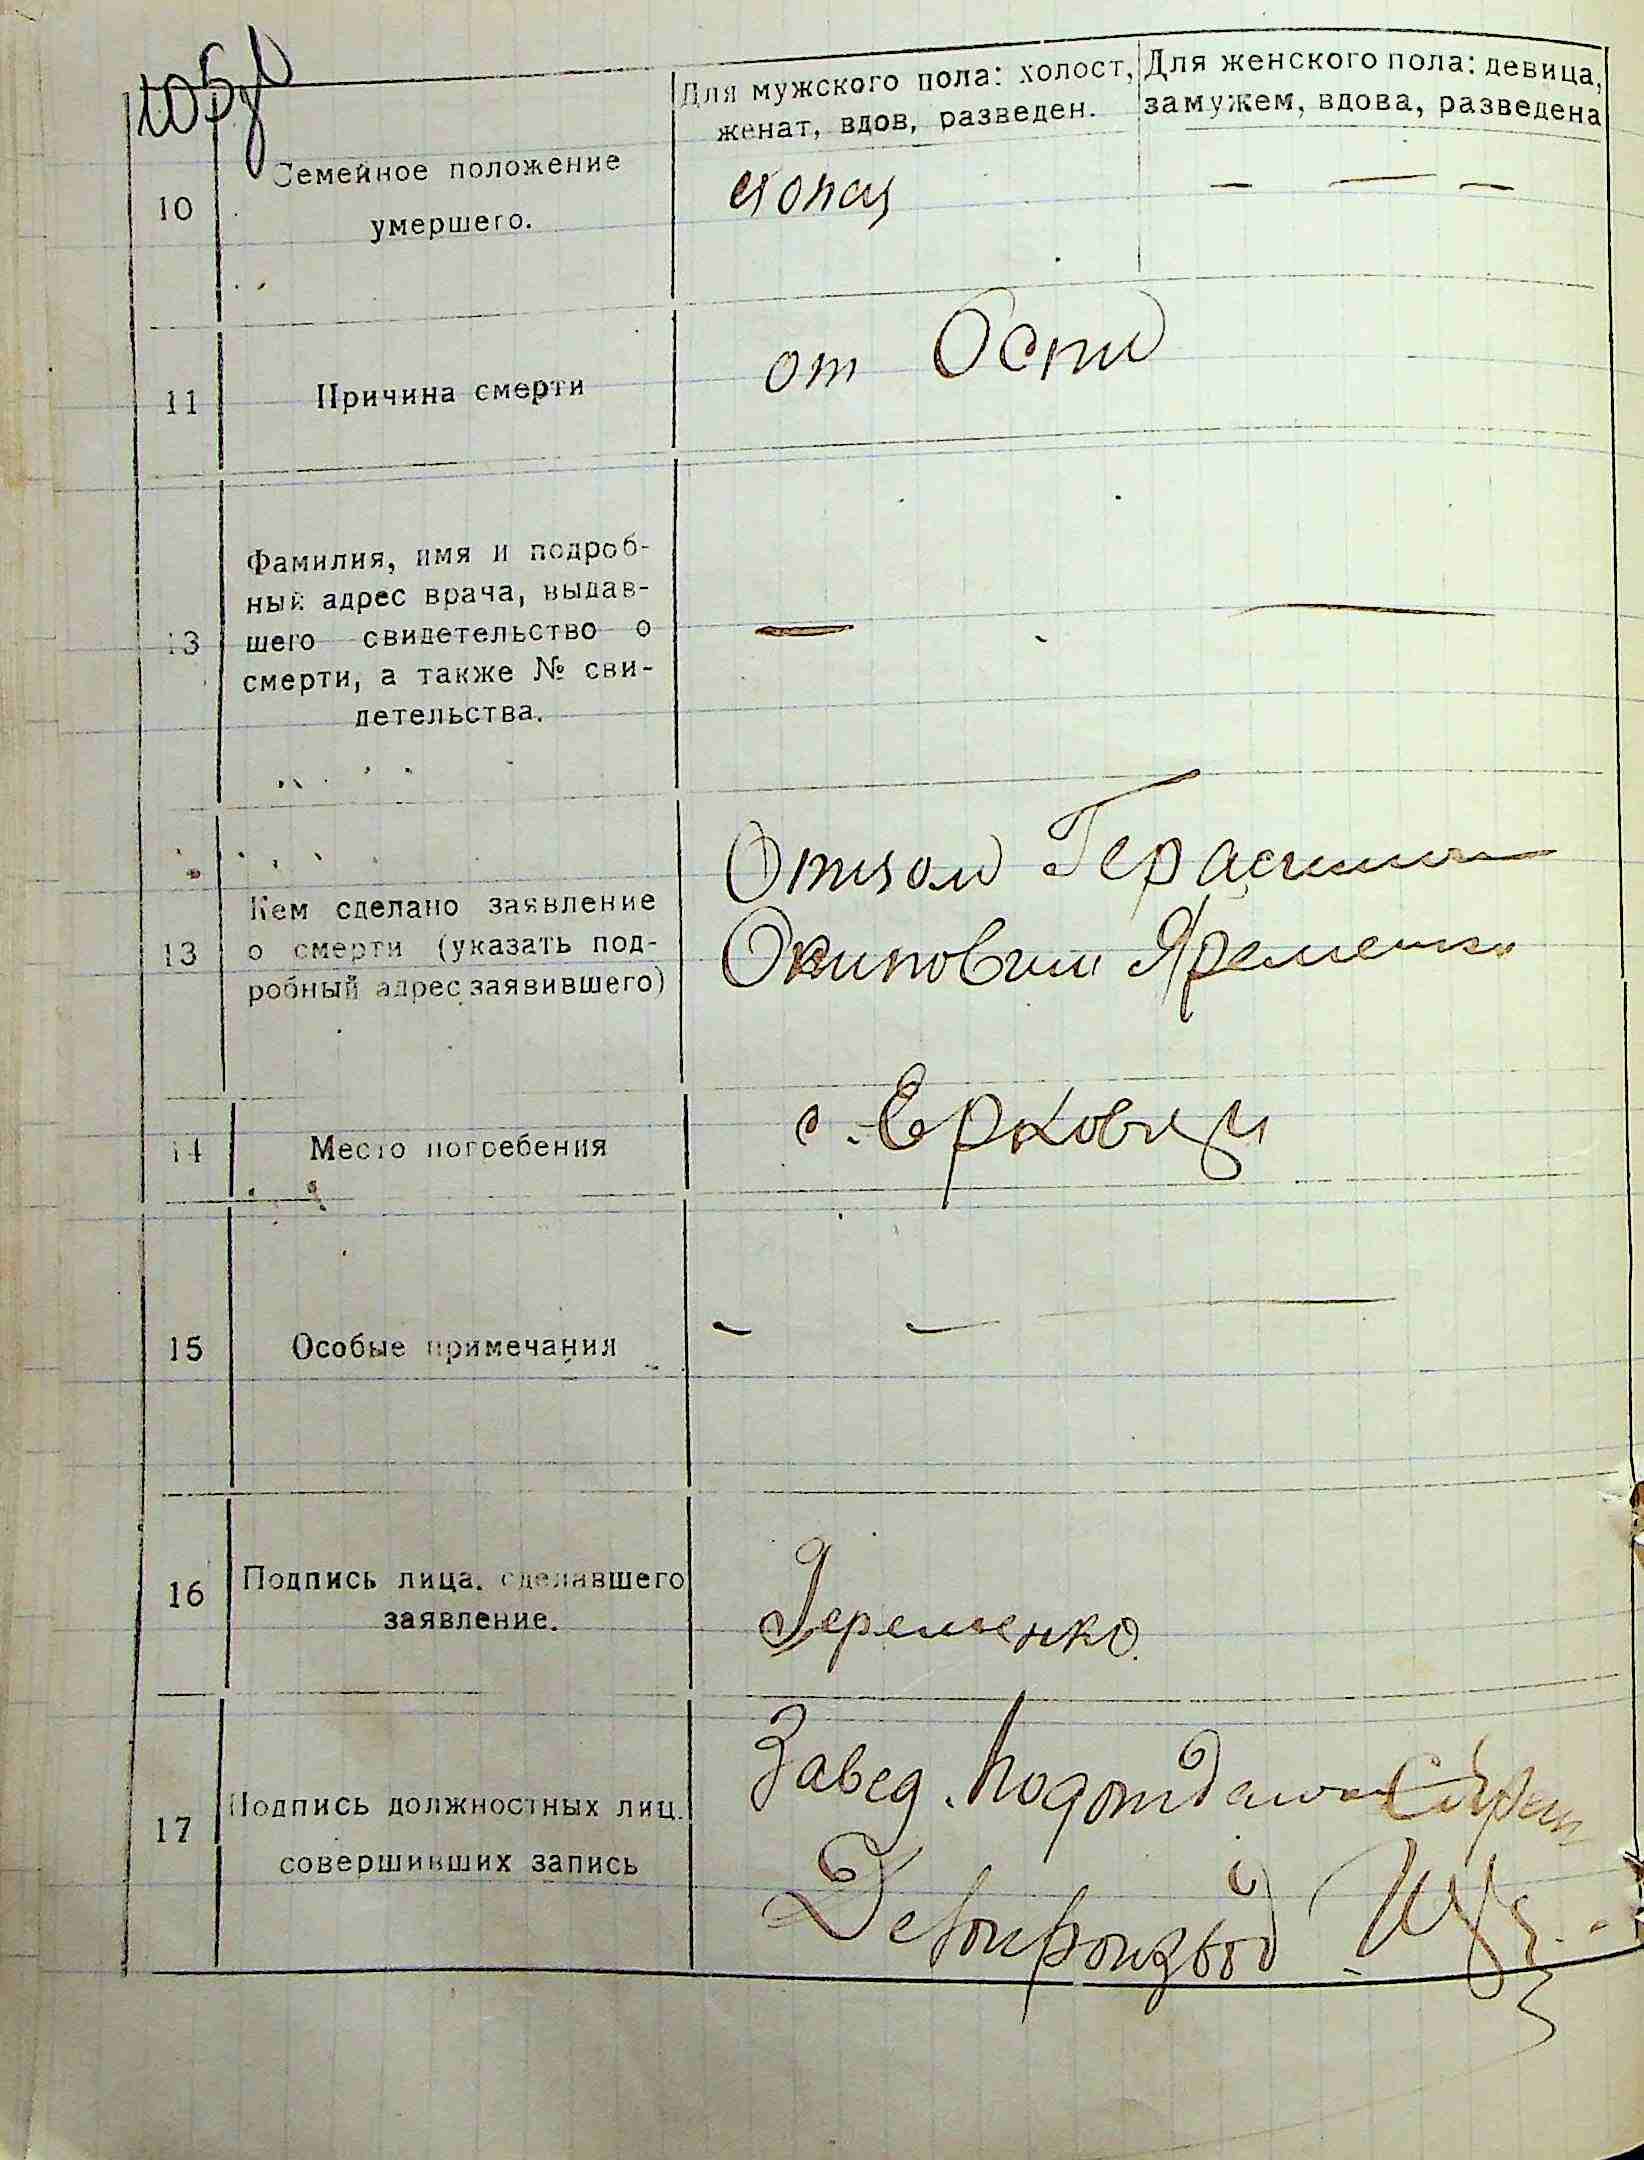 Для мужского пола: холост,
женат, вдов, разведен.
Для женского пола: девица,
замужем, вдова, разведена
10
Семейное положение
умершего.
— — —
11
Причина смерти
от Оспи
13
Фамилия, имя и подроб-
ный адрес врача, выдав-
шего свидетельство о
смерти, а также № сви-
детельства.
— —
13
Кем сделано заявление
о смерти (указать под-
робный адрес заявившего)
Отцом Герасимом
Яременко
14
Место погребения
с. Ерковци
15
Особые примечания
— — —
16
Подпись лица, сделавшего
заявление.
Яременко.
17
Подпись должностных лиц.
совершивших запись
Завед. Подотделом
Делопроизвод